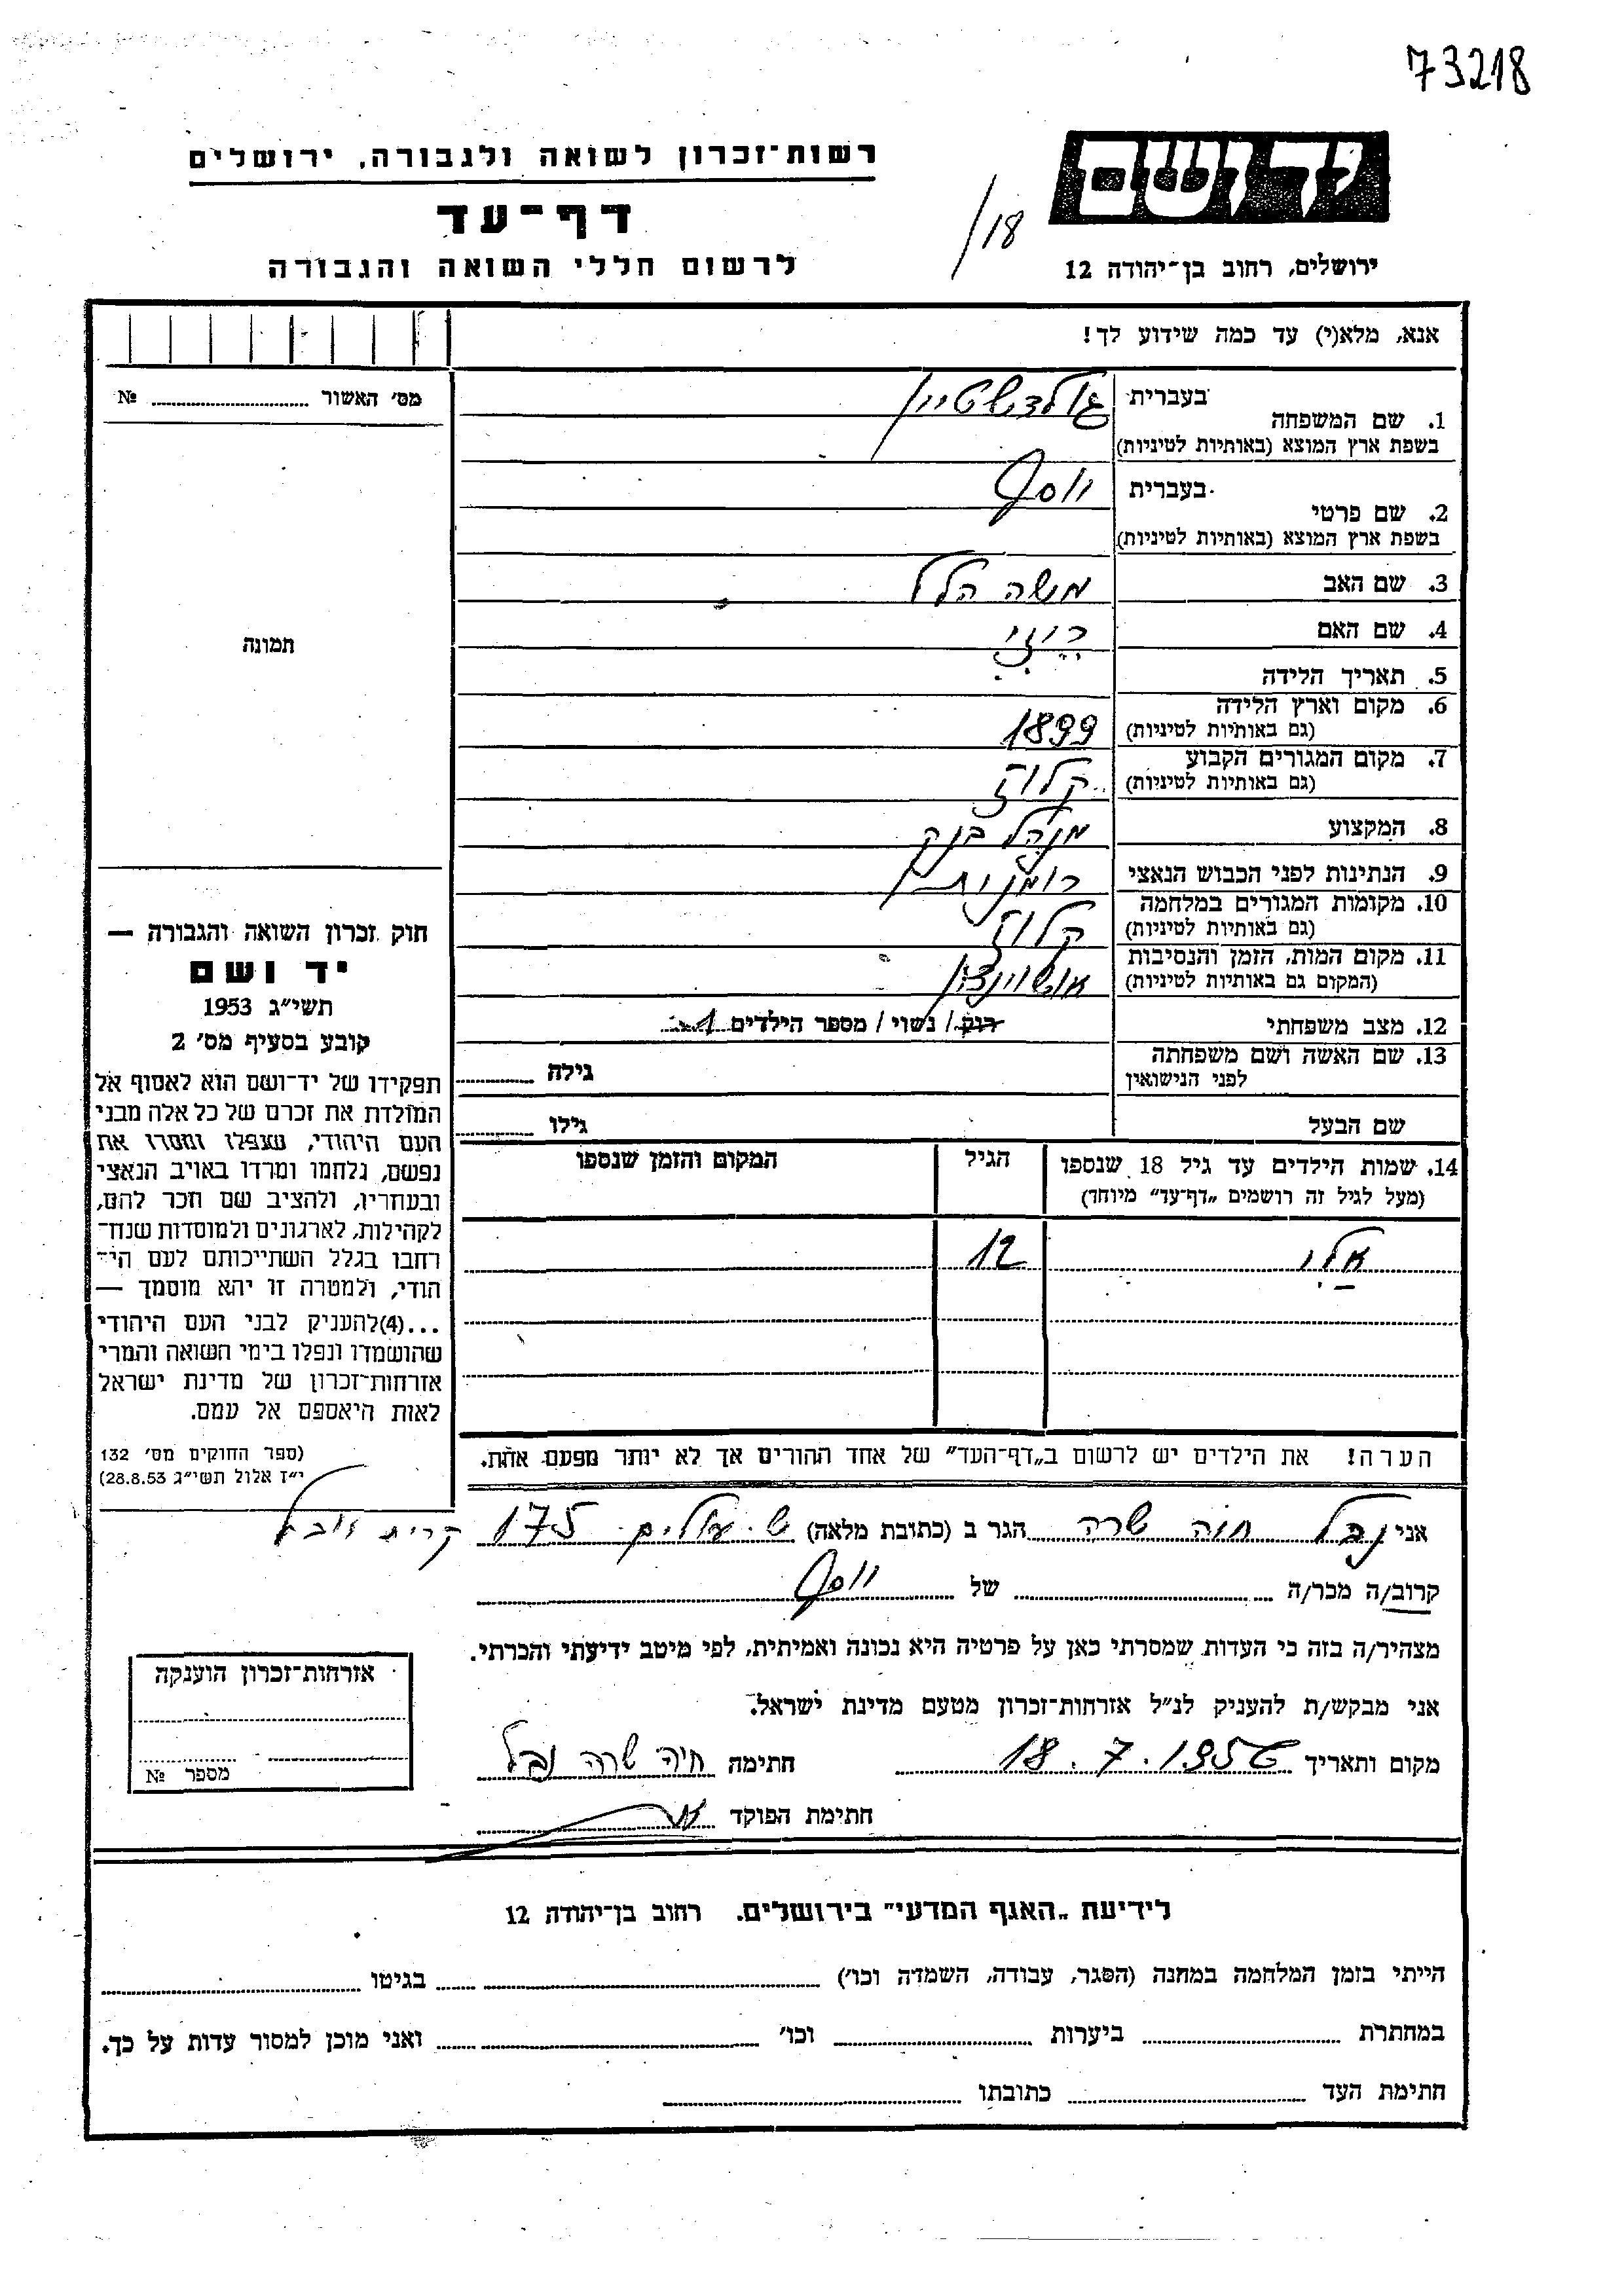 73218
יד ושם
רשות־זכרון לשואה ולגבורה, ירושלים
דף־עד
לרשום חללי השואה והגבורה
/18
ירושלים, רחוב בן־יהודה 12
אנא, מלא(י) עד כמה שידוע לך!
מס׳ האשור № 
1. שם המשפחה בעברית גולדשטיין
בשפת ארץ המוצא (באותיות לטיניות)
2. שם פרטי בעברית יוסף
בשפת ארץ המוצא (באותיות לטיניות)
3. שם האב משה הלל
4. שם האם רוזי
5. תאריך הלידה
6. מקום וארץ הלידה
(גם באותיות לטיניות) 1899
7. מקום המגורים הקבוע
(גם באותיות לטיניות) קלוז
8. המקצוע מנהל בנק
9. הנתינות לפני הכבוש הנאצי
10. מקומות המגורים במלחמה
(גם באותיות לטיניות) קלוז
11. מקום המות, הזמן והנסיבות
(המקום גם באותיות לטיניות) אושוינצין
12. מצב משפחתי רווק / נשוי / מספר הילדים 1
13. שם האשה ושם משפחתה
לפני הנישואין גילה
שם הבעל גילו
14. שמות הילדים עד גיל 18 שנספו הגיל המקום והזמן שנספו
(מעל לגיל זה רושמים „דף־עד״ מיוחד)
אלי 12
הערה! את הילדים יש לרשום ב„דף־העד״ של אחד ההורים אך לא יותר מפעם אחת.
תמונה
חוק זכרון השואה והגבורה —
יד ושם
תשי״ג 1953
קובע בסעיף מס׳ 2
תפקידו של יד־ושם הוא לאסוף אל
המולדת את זכרם של כל אלה מבני
העם היהודי, שנפלו ומסרו את
נפשם, נלחמו ומרדו באויב הנאצי
ובעוזריו, ולהציב שם וזכר להם,
לקהילות, לארגונים ולמוסדות שנח־
רבו בגלל השתייכותם לעם הי־
הודי, ולמטרה זו יהא מוסמך —
...(4)להעניק לבני העם היהודי
שהושמדו ונפלו בימי השואה והמרי
אזרחות־זכרון של מדינת ישראל
לאות היאספם אל עמם.
(ספר החוקים מס׳ 132
י״ז אלול תשי״ג 28.8.53)
אני חוה שרה הגר ב (כתובת מלאה) ש. עולים 175 קרית יובל
קרוב/ה מכר/ה של יוסף
מצהיר/ה בזה כי העדות שמסרתי כאן על פרטיה היא נכונה ואמיתית, לפי מיטב ידיעתי והכרתי.
אני מבקש/ת להעניק לנ״ל אזרחות־זכרון מטעם מדינת ישראל.
מקום ותאריך 18.7.1956 חתימה חוה שרה
חתימת הפוקד
אזרחות־זכרון הוענקה
מספר №
לידיעת „האגף המדעי״ בירושלים, רחוב בן־יהודה 12
הייתי בזמן המלחמה במחנה (הסגר, עבודה, השמדה וכו׳) בגיטו
במחתרת ביערות וכו׳ ואני מוכן למסור עדות על כך.
חתימת העד כתובתו